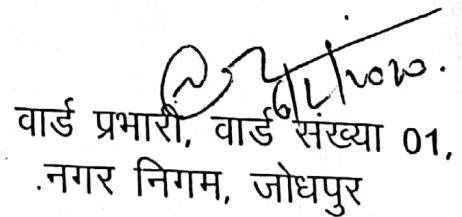 वार्ड प्रभारी, वार्ड संख्या 01,
.नगर निगम, जोधपुर